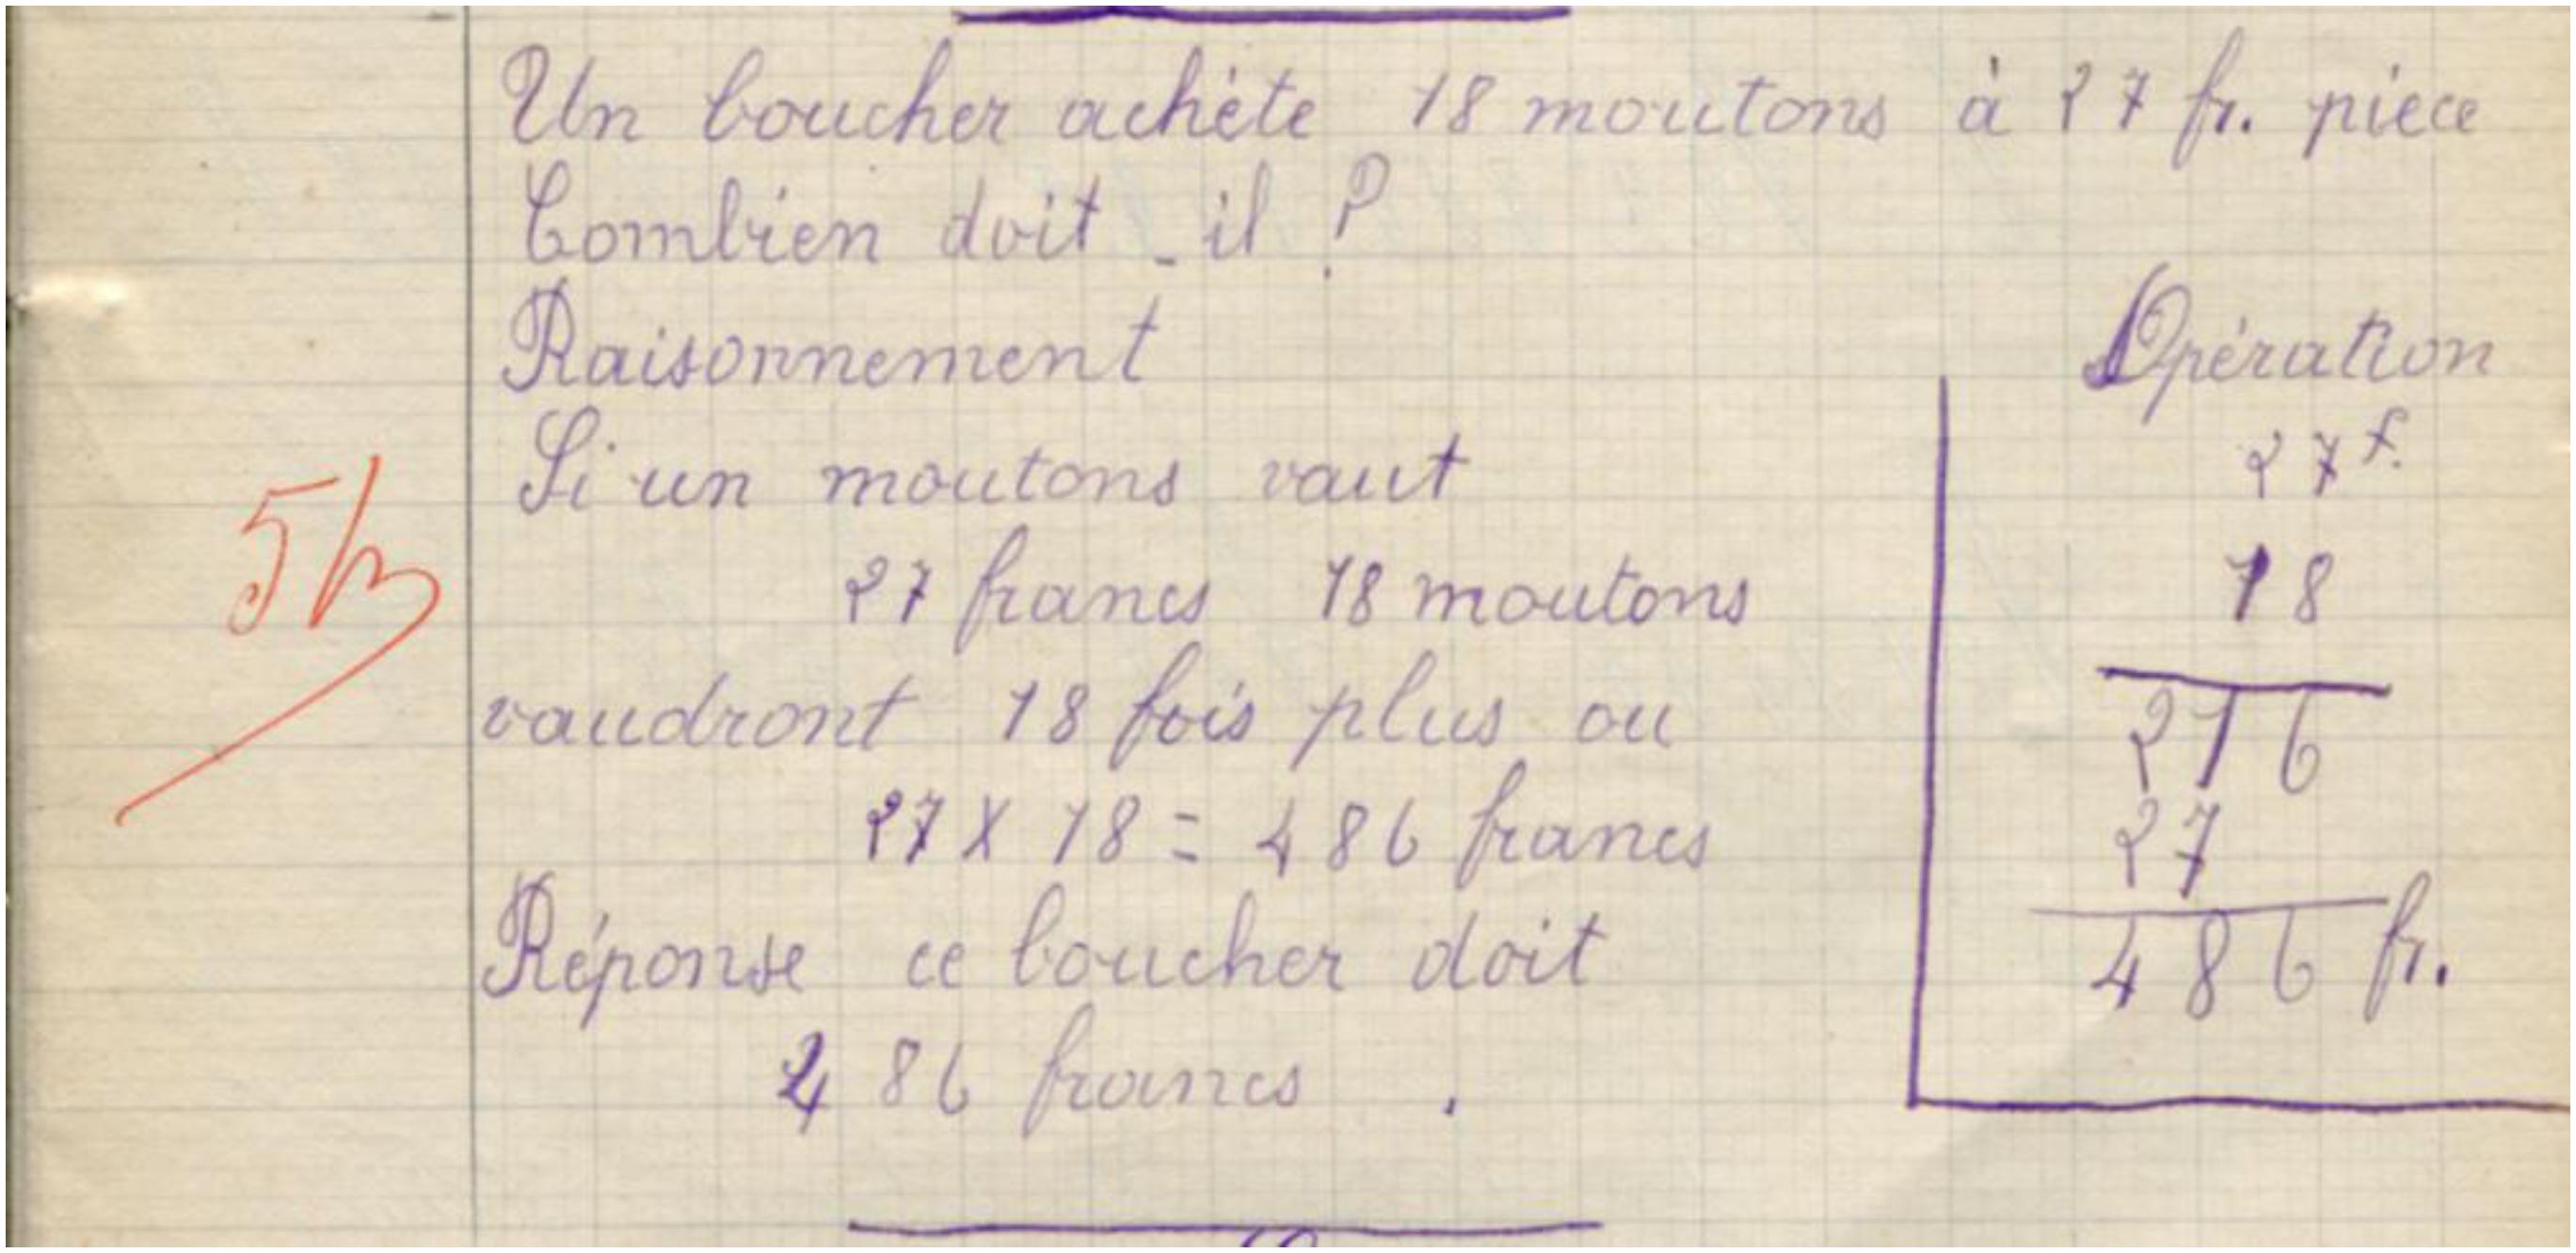 Un boucher achète 18 moutons à 27 fr. pièce
Combien doit-il ?
Raisonnement
Si un moutons vaut
27 francs 18 moutons
vaudront 18 fois plus ou
27 X 18 = 486 francs
Réponse ce boucher doit
486 francs .
Opération
27 f.
18
216
27
486 fr.